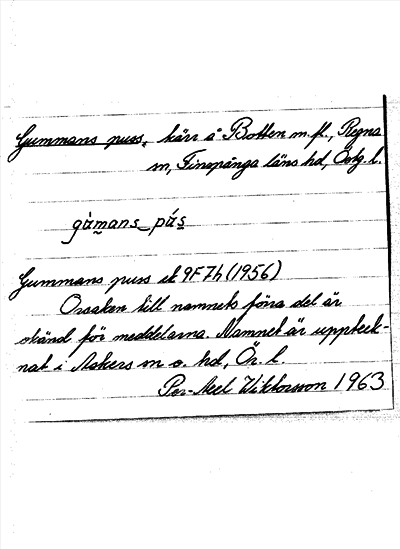 Gummans puss, kärr å Botten m.fl., Regna
sn, Finspånga läns hd, Östg. l.
gùmans_pús
Gummans puss ek 9F7h (1956)
Orsaken till namnets förra del är
okänd för meddelarna. Namnet är uppteck-
nat i Askers sn o. hd, Ör. l.
Per-Axel Wiktorsson 1963